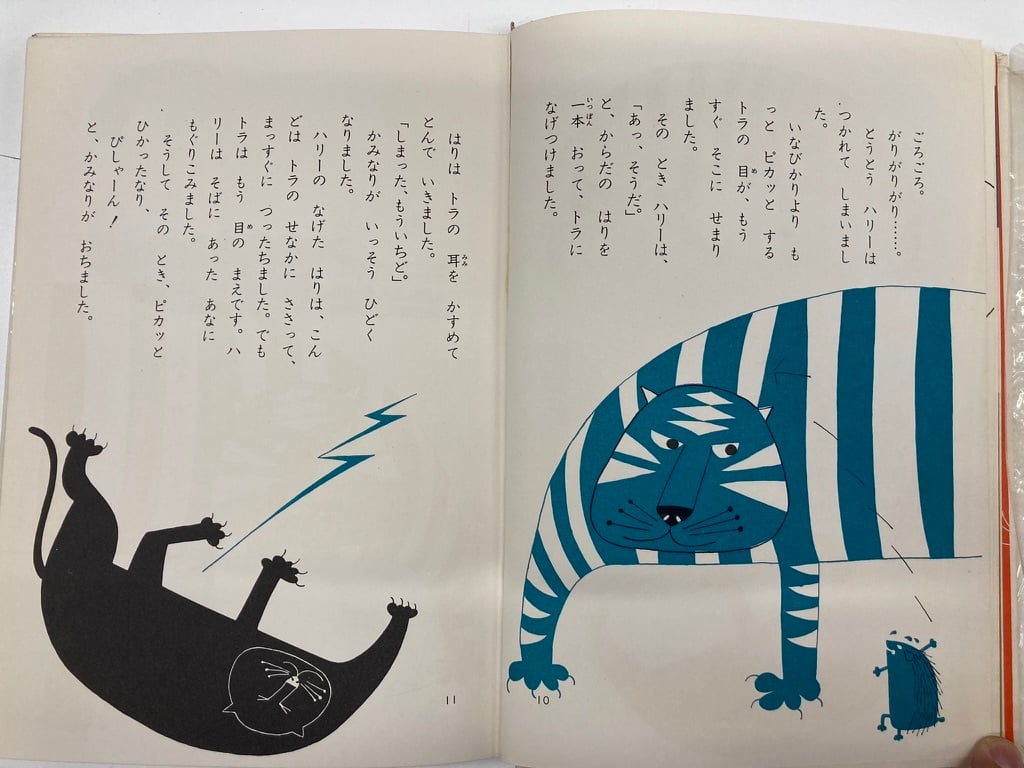 ごろごろ。
がりがりがり……。
とうとう ハリーは
つかれて しまいまし
た。
いなびかりより も
っと ピカッと する
トラの 目が、もう
すぐ そこに せまり
ました。
その とき ハリーは、
「あっ、そうだ。」
と、からだの はりを
一本 おって、トラに
なげつけました。
10
はりは トラの 耳を かすめて
とんで いきました。
「しまった、もういちど。」
かみなりが いっそう ひどく
なりました。
ハリーの なげた はりは、こん
どは トラの せなかに ささって、
まっすぐに つったちました。でも
トラは もう 目の まえです。ハ
リーは そばに あった あなに
もぐりこみました。
そうして その とき、ピカッと
ひかったなり、
ぴしゃーん!
と、かみなりが おちました。
11